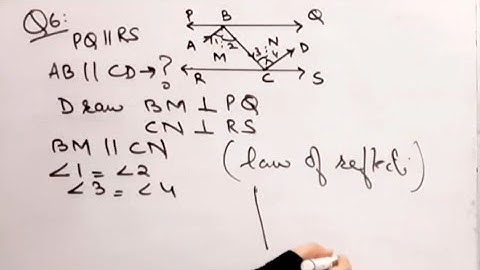 Q6:
P B Q
PQ || RS
A 1 2
M N D
3 4
AB || CD → ?
R C S
Draw BM ⊥ PQ
CN ⊥ RS
BM || CN
∠1 = ∠2
(law of reflect:)
∠3 = ∠4